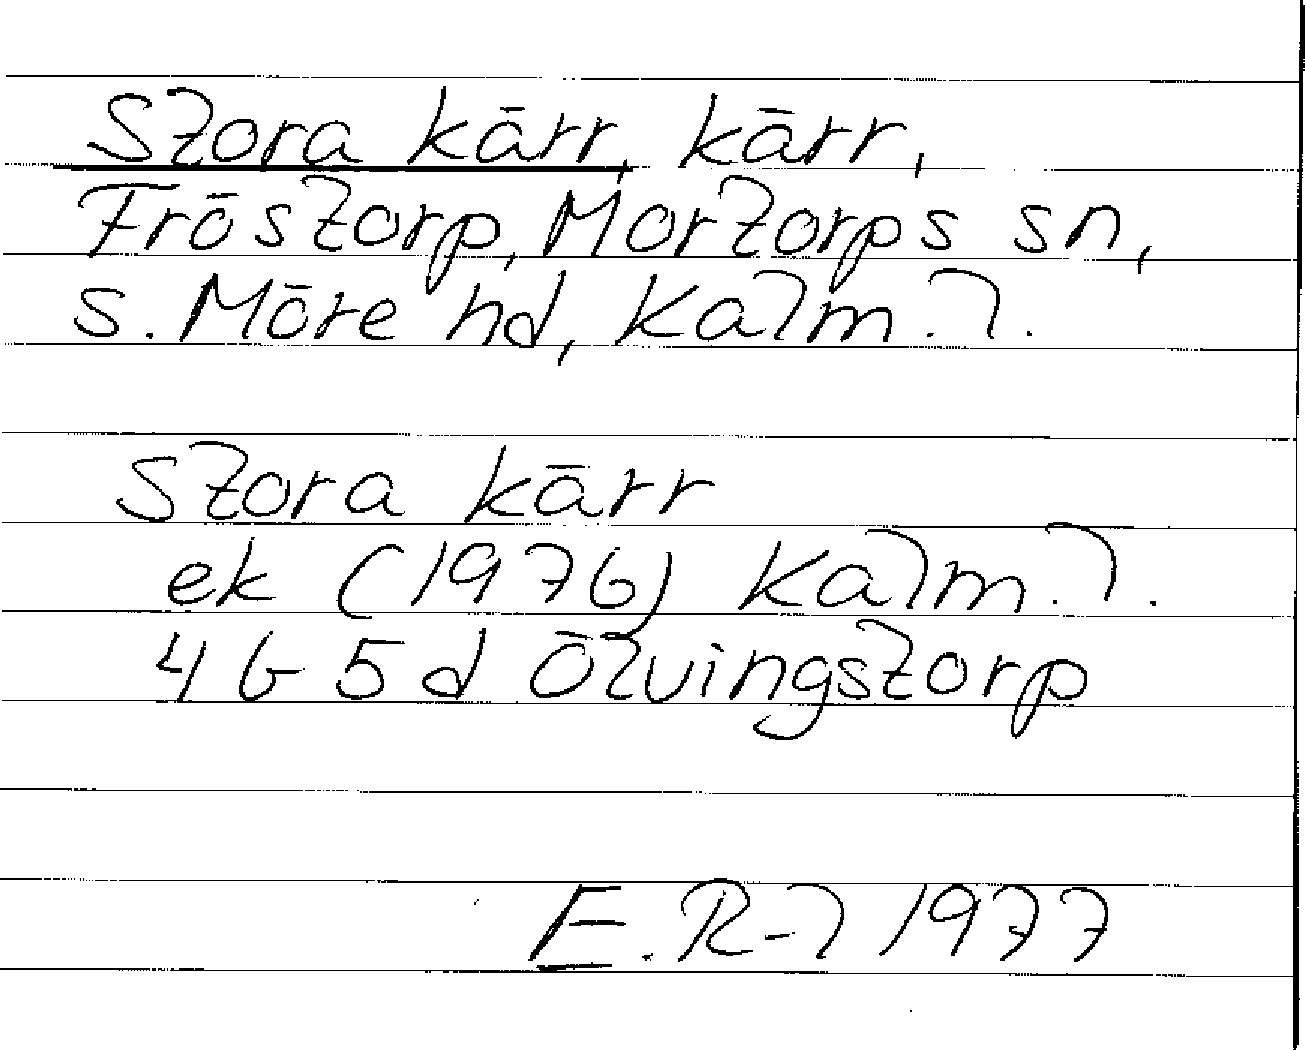 Stora kärr, kärr,
Fröstorp, Mortorps sn,
S. Möre hd, Kalm. l.
Stora kärr
ek (1976) Kalm. l.
4 G 5 d Ölvingstorp
E. R-l 1977